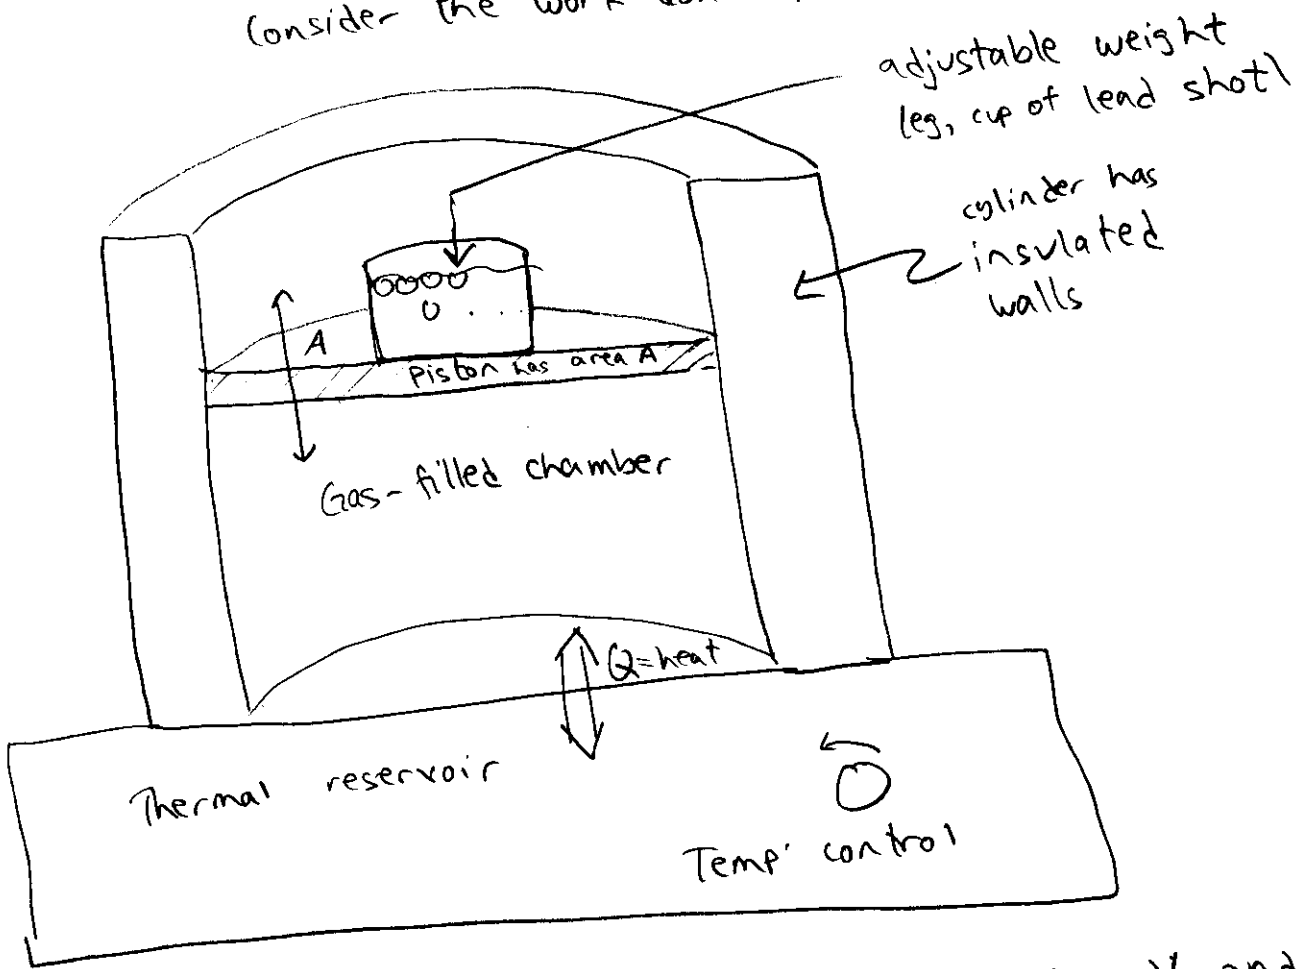 Consider the work
adjustable weight
(eg, cup of lead shot)
cylinder has
insulated
walls
A
Piston has area A
Gas-filled chamber
Q=heat
Thermal reservoir
Temp' control
and